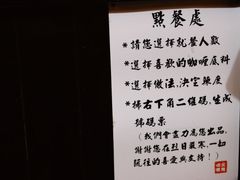 點餐處
*請您選擇就餐人數
*選擇喜歡的咖喱底料
*選擇做法、決定辣度
*掃右下角二維碼,生成
號碼票
(我們會盡力為您出品,
謝謝您在烈日嚴寒,一如
既往的喜愛與支持!)